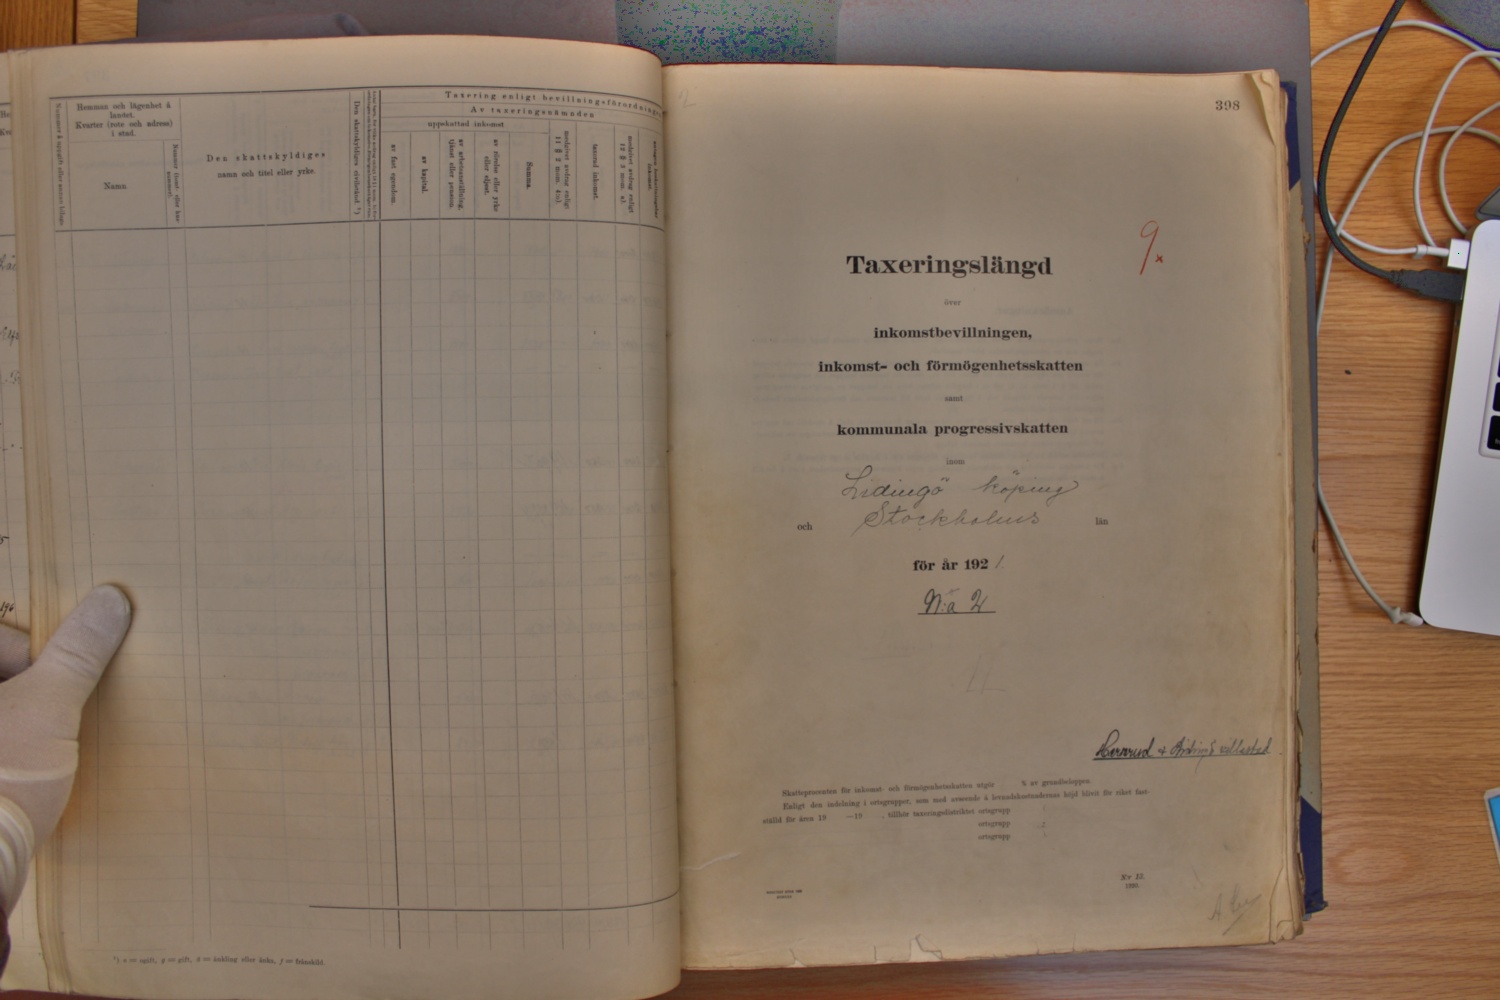 Hemman och lägenhet å
landet.
Kvarter (rote och adress)
i stad.
Namn.
Den skattskyldiges
namn och titel eller yrke.
Den skattskyldiges civilstånd. ¹)
Taxering enligt bevillningsförordningen
Av taxeringsnämnden
uppskattad inkomst
av fast egendom.
av kapital.
av arbetsanställning,
tjänst eller pension.
av rörelse eller yrke
eller eljest.
Summa.
medgivet avdrag enligt
taxerad inkomst.
medgivet avdrag enligt
¹) o = ogift, g = gift, ä = änkling eller änka, f = frånskild.
2
398
9
Taxeringslängd
över
inkomstbevillningen,
inkomst- och förmögenhetsskatten
samt
kommunala progressivskatten
inom
Lidingö köping
och Stockholms län
för år 1921
villastad
Skatteprocenten för inkomst- och förmögenhetsskatten utgör % av grundbeloppet.
Enligt den indelning i ortsgrupper, som med avseende å levnadskostnadernas höjd blivit för riket fast-
ställd för åren 19 —19 , tillhör taxeringsdistriktet ortsgrupp
ortsgrupp
ortsgrupp
Nr 12.
1920.